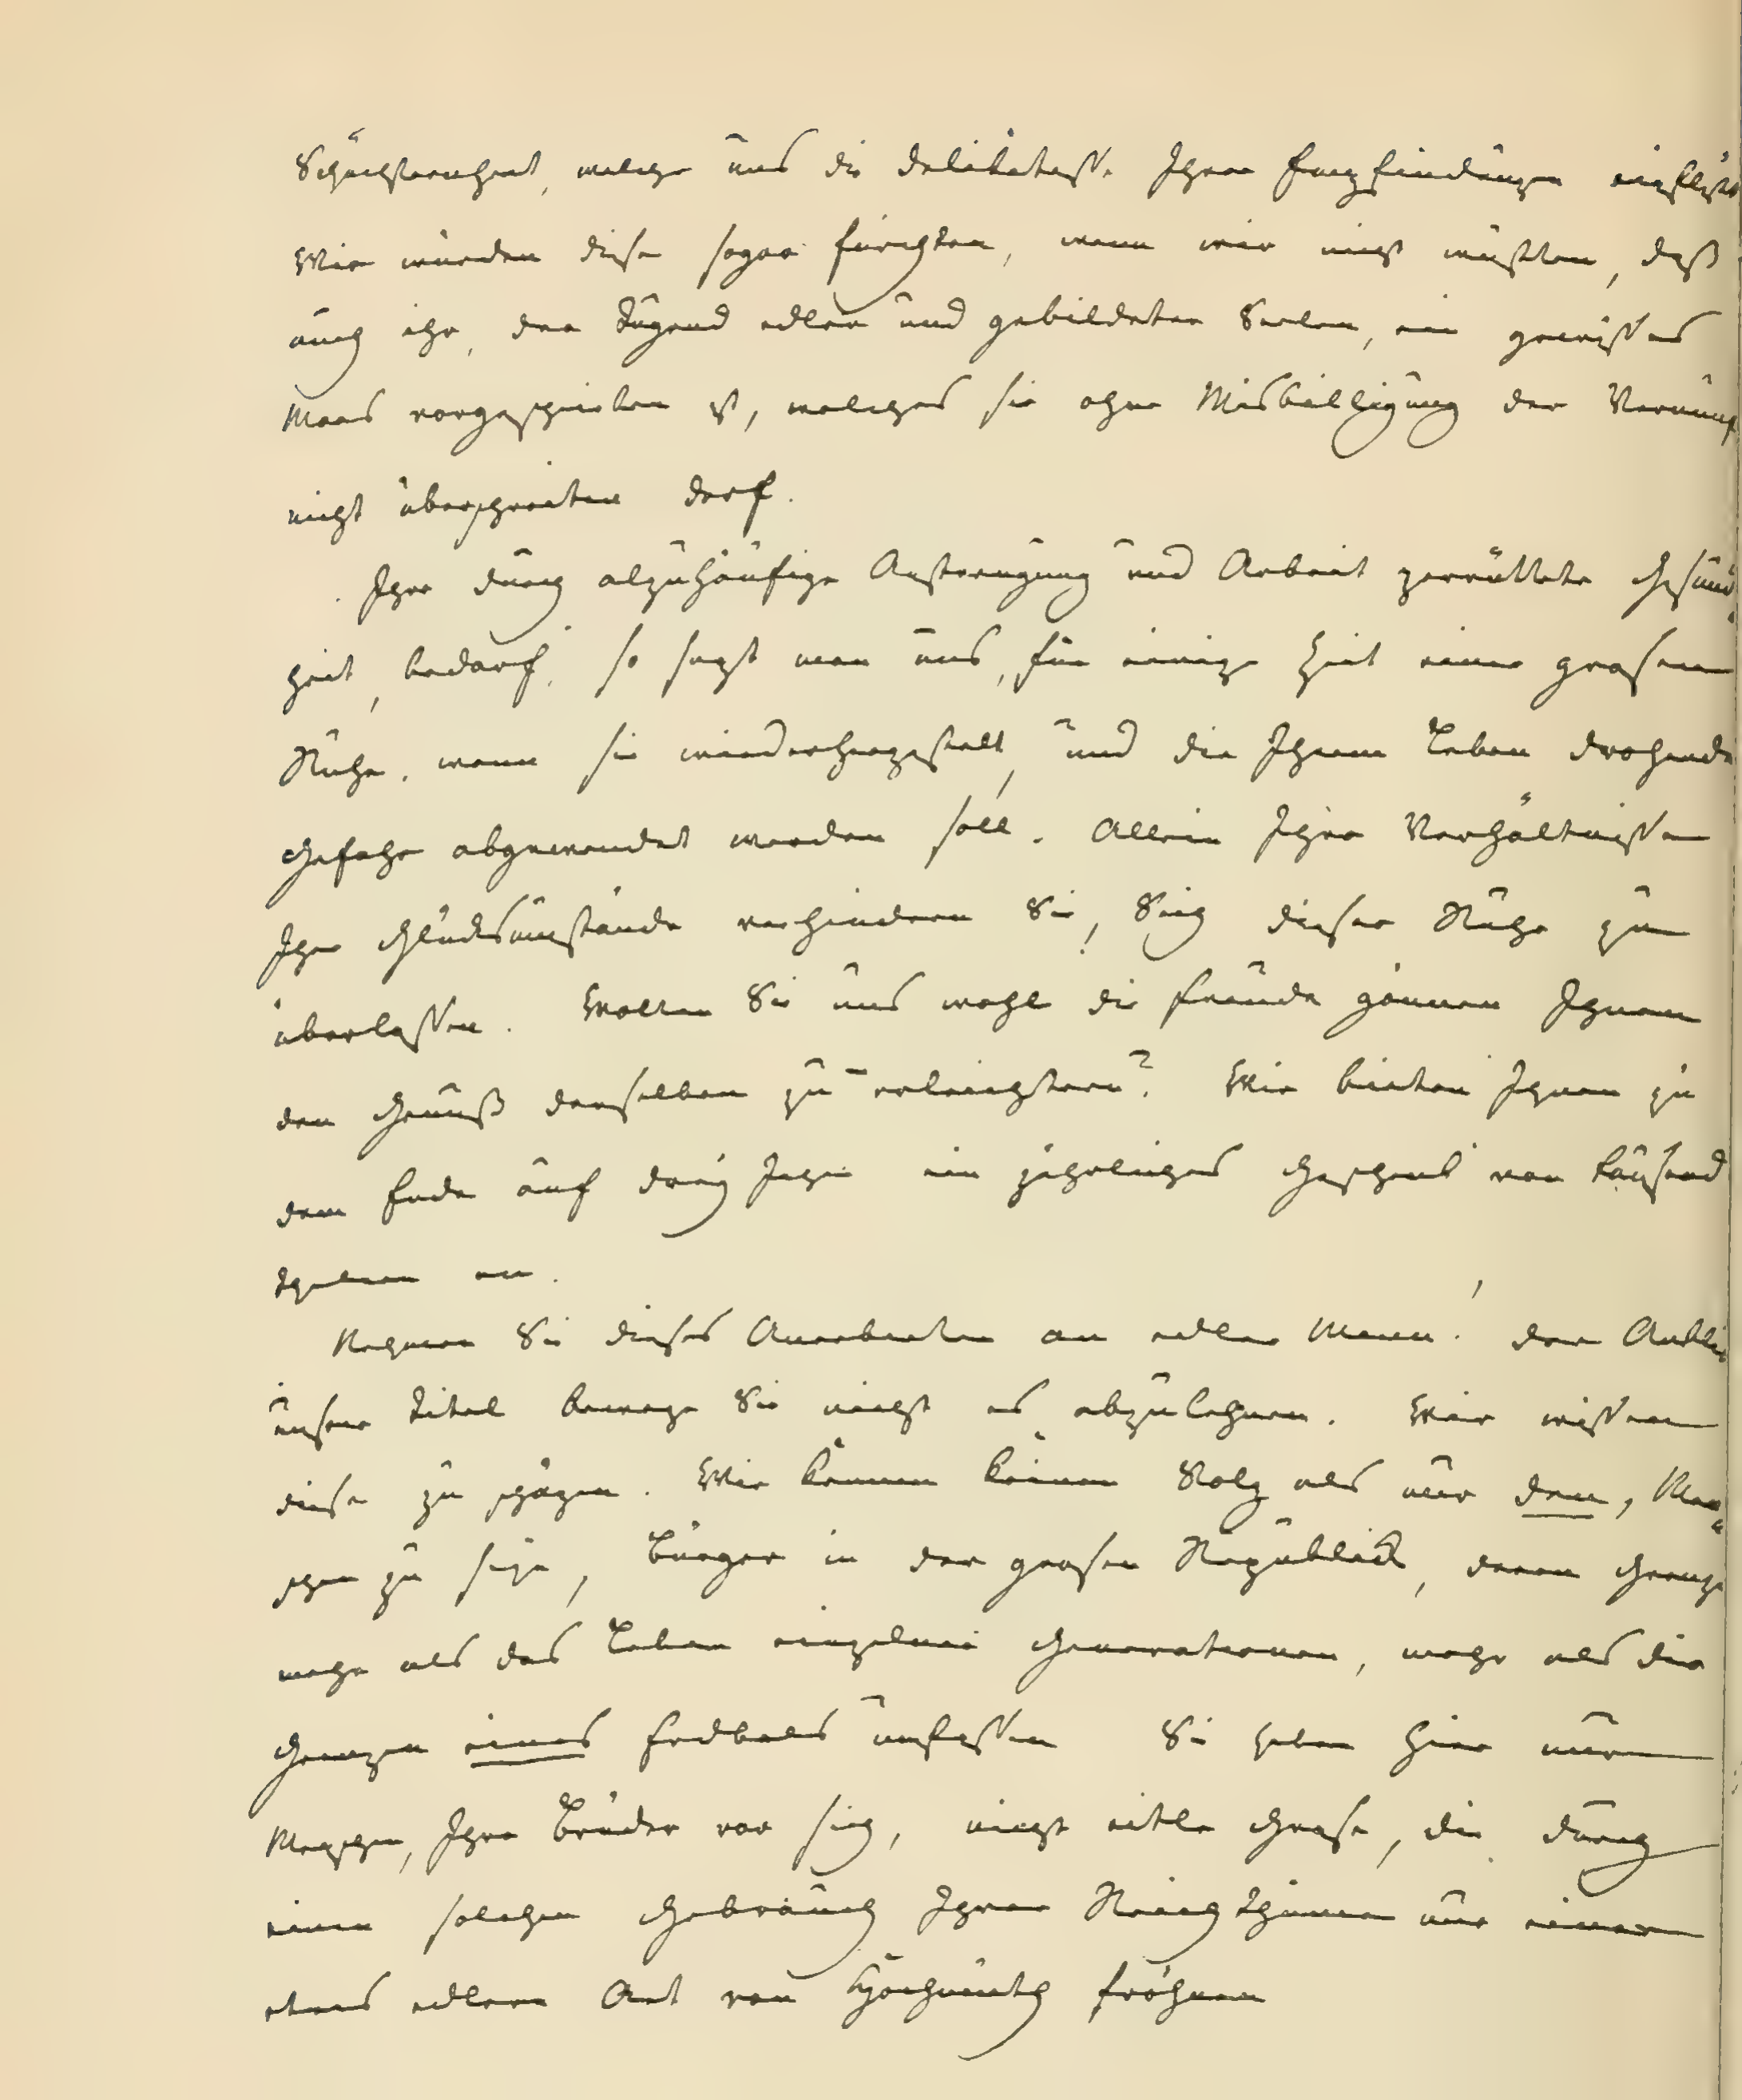 Schüchternheit, welche uns die Delikatesse Ihrer Empfindungen einflößt
Wir würden diese sogar fürchten, wenn wir nicht wüsten, daß
auch ihr, der Tugend edler und gebildeter Seelen, ein gewisses
Maas vorgeschrieben ist, welches sie ohne Misbilligung der Vernunft
nicht überschreiten darf.
Ihre durch alzuhäufige Anstrengung und Arbeit zerrüttete Gesund
heit, bedarf, so sagt man uns, für einige Zeit einer grosen
Ruhe, wenn sie wiederhergestellt, und die Ihrem Leben drohende
Gefahr abgewendet werden soll. Allein Ihre Verhältnisse
Ihre Glücksumstände verhindern Sie, Sich dieser Ruhe zu
überlassen. Wollen Sie uns wohl die Freude gönnen Ihnen
den Genuß derselben zu erleichtern? Wir bieten Ihnen zu
dem Ende auf drey Jahre ein jährliches Geschenk von tausend
Thalern an.
Nehmen Sie dieses Anerbieten an edler Mann! Der Anblick
unsrer Titel bewege Sie nicht es abzulehnen. Wir wissen
diese zu schäzen. Wir kennen keinen Stolz als nur den, Men
schen zu seyn, Bürger in der grosen Republick, deren Grenzen
mehr als das Leben einzelner Generationen, mehr als die
Grenzen eines Erdballs umfassen Sie haben hier nur
Menschen, Ihre Brüder vor sich, nicht eitle Grose, die durch
einen solchen Gebrauch Ihrer Reichthümer nur einer
etwas edlern Art von Hochmuth fröhnen